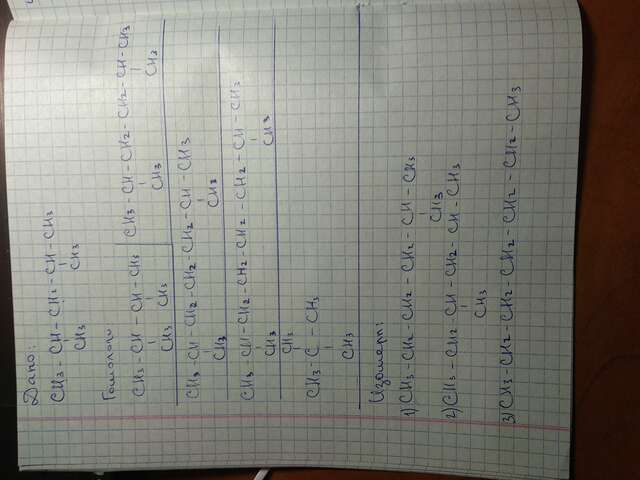 Дано:
CH3 - CH - CH2 - CH - CH3
CH3 CH3
Гомологи
CH3 - CH - CH - CH3
CH3 CH3
CH3 - CH - CH2 - CH2 - CH - CH3
CH3 CH3
CH3 - CH - CH2 - CH2 - CH2 - CH - CH3
CH3 CH3
CH3 - CH - CH2 - CH2 - CH2 - CH2 - CH - CH3
CH3 CH3
CH3
CH3 - C - CH3
CH3
Изомеры:
1) CH3 - CH2 - CH2 - CH2 - CH - CH3
CH3
2) CH3 - CH2 - CH - CH2 - CH - CH3
CH3
3) CH3 - CH2 - CH2 - CH2 - CH2 - CH2 - CH3